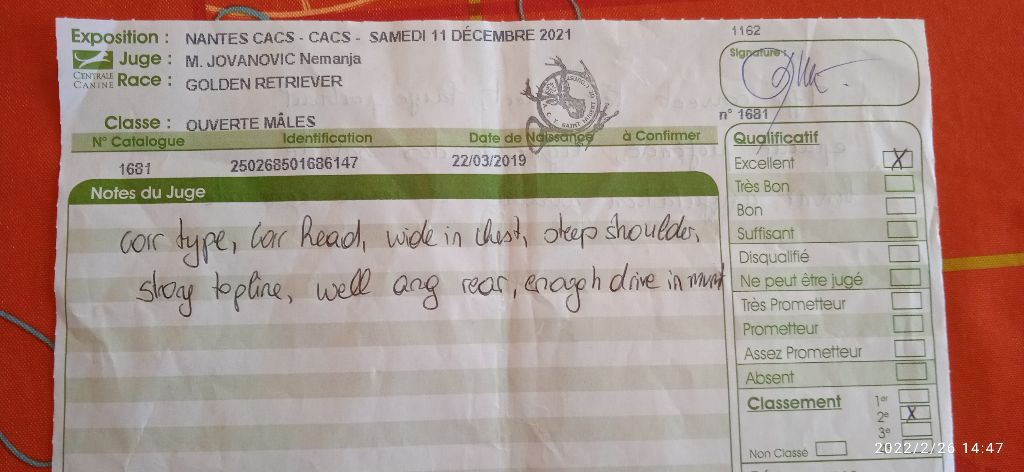 Exposition : NANTES CACS - CACS - SAMEDI 11 DÉCEMBRE 2021
Juge : M. JOVANOVIC Nemanja
CENTRALE CANINE
Race : GOLDEN RETRIEVER
Classe : OUVERTE MÂLES
N° Catalogue Identification Date de Naissance à Confirmer
1681 250268501686147 22/03/2019
Notes du Juge
corr type, corr head, wide in chest, steep shoulder,
strong topline, well ang rear, enough drive in mvmt
1162
Signature :
n° 1681
Qualificatif
Excellent X
Très Bon
Bon
Suffisant
Disqualifié
Ne peut être jugé
Très Prometteur
Prometteur
Assez Prometteur
Absent
Classement
1er
2e X
3e
Non Classé
2022/2/26 14:47